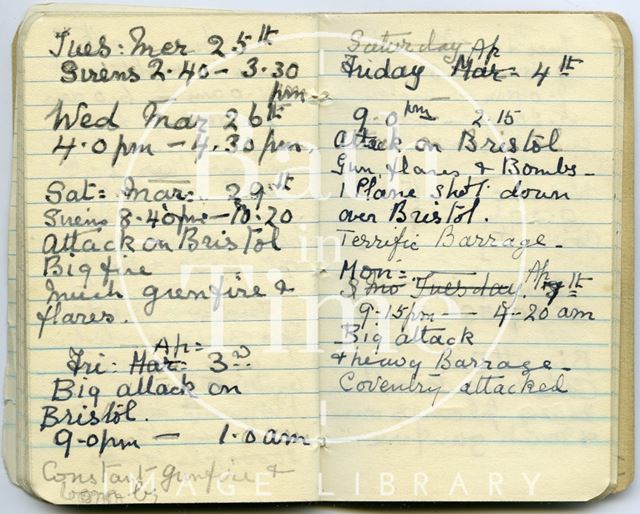 Tues: Mar 25th
Sirens 2.40 - 3.30
pm
Wed Mar 26th
4.0pm - 4.30pm.
Sat: Mar: 29th
Sirens 8.40pm - 10.20
Attack on Bristol
Big fire
Much gunfire &
flares.
Ap:
Fri: Mar: 3rd
Big attack on
Bristol.
9-0pm - 1.0am
Constant gunfire &
bombs
Saturday Ap
Friday Mar: 4th
9.0pm 2.15
Attack on Bristol
Gun. flares & Bombs -
1 Plane shot down
over Bristol.
Terrific Barrage -
Mon: Ap
Tuesday. 7th
9.15pm - 4-20am
Big attack
& heavy Barrage -
Coventry attacked
Bath in Time
IMAGE LIBRARY